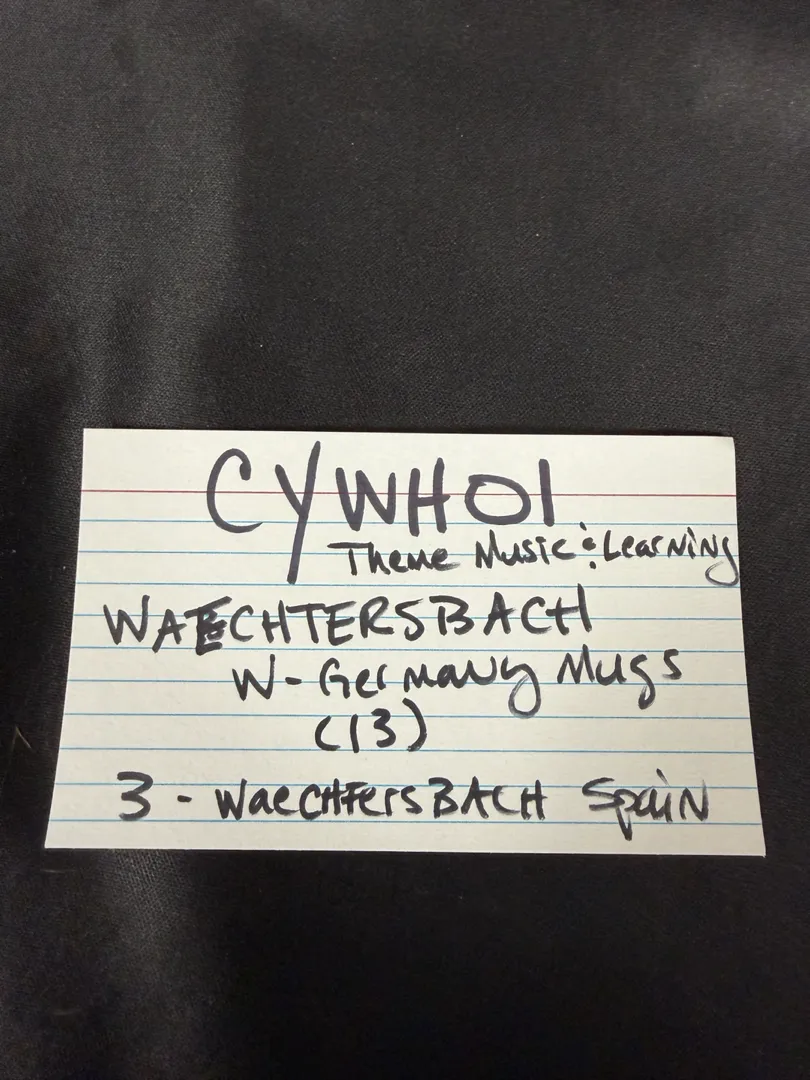 CYWHOI
Theme Music & Learning
WAECHTERSBACH
W-Germany Mugs
(13)
3 - WaeCHTersBACH Spain